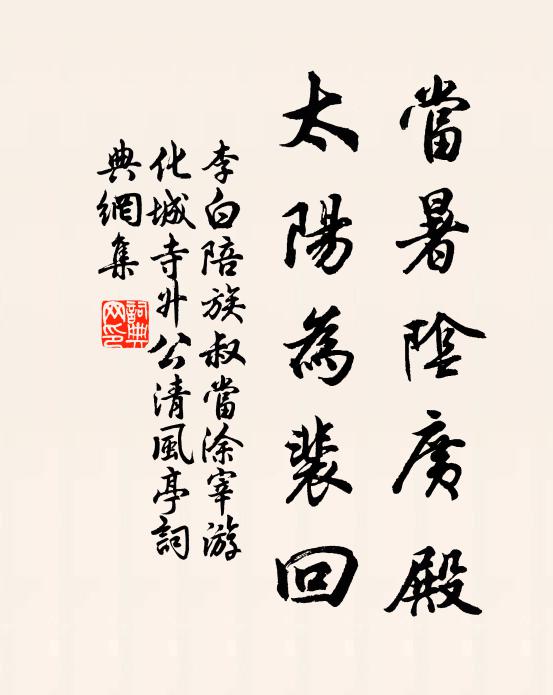 當暑陰廣殿
太陽為裴回
李白陪族叔當涂宰游
化城寺升公清風亭詞
典網集
詞典網印